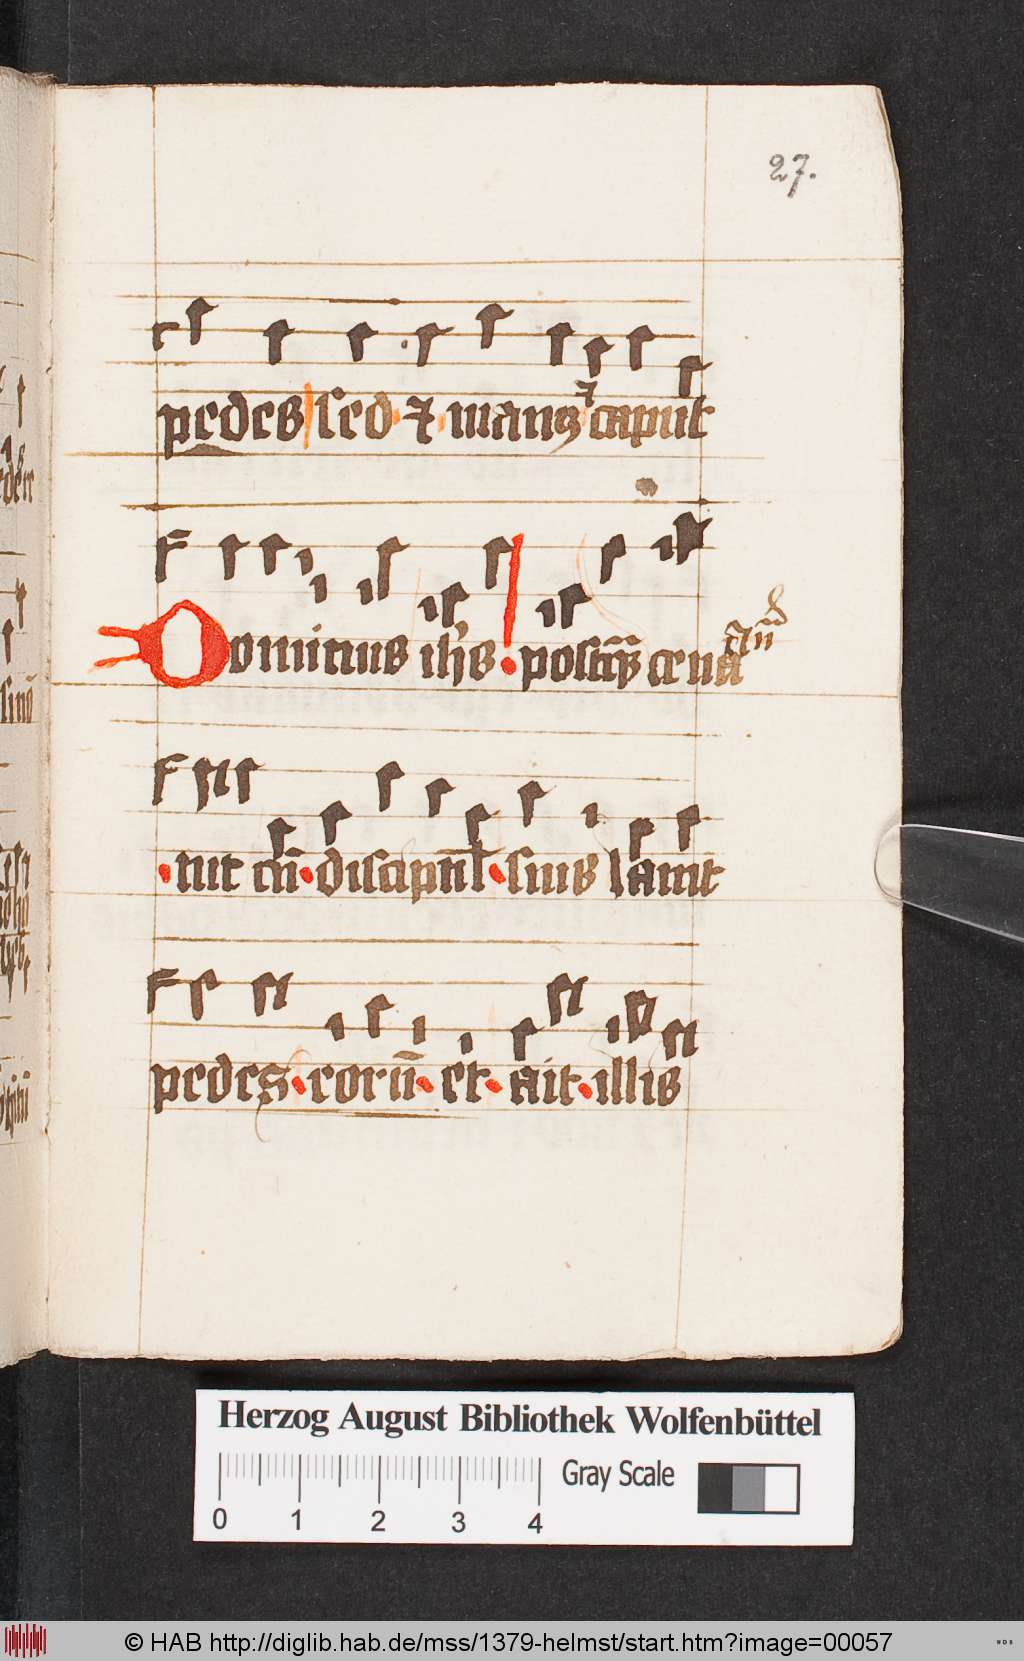 27.
pedes sed ⁊ manꝰ ⁊ caput
Dominus ih̅s postq̅ꝫ cena
nit cu̅ discipul̅ suis lauit
pedes eoru̅ et ait illis
Herzog August Bibliothek Wolfenbüttel
Gray Scale
0 1 2 3 4
© HAB http://diglib.hab.de/mss/1379-helmst/start.htm?image=00057